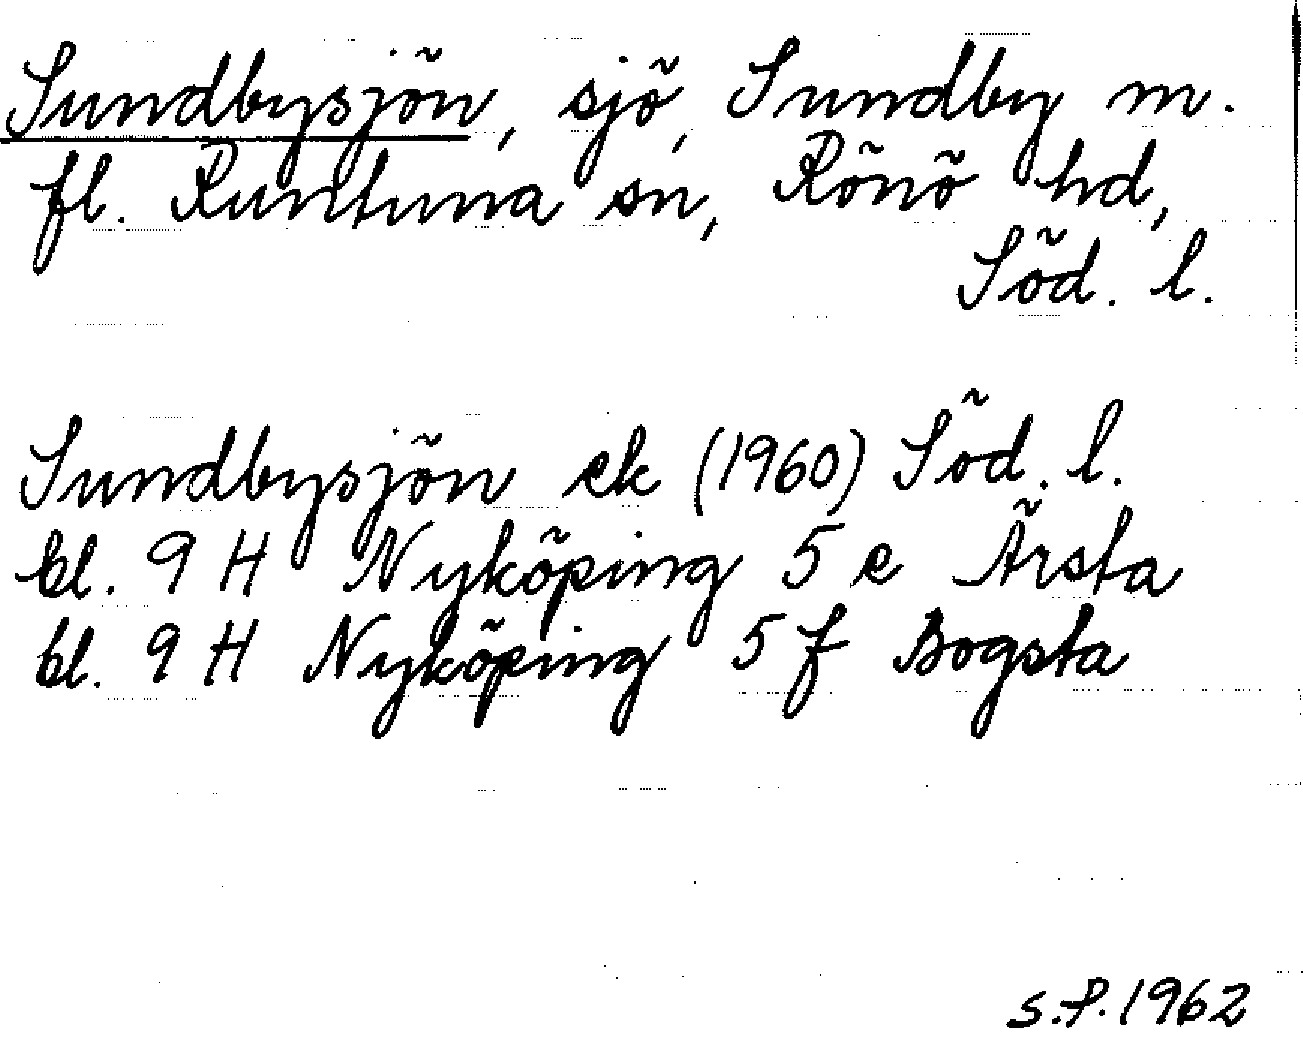 Sundbysjön, sjö, Sundby m.
fl. Runtuna sn, Rönö hd,
Söd. l.
Sundbysjön ek (1960) Söd. l.
bl. 9 H Nyköping 5 e Ärsta
bl. 9 H Nyköping 5 f Bogsta
S.P. 1962